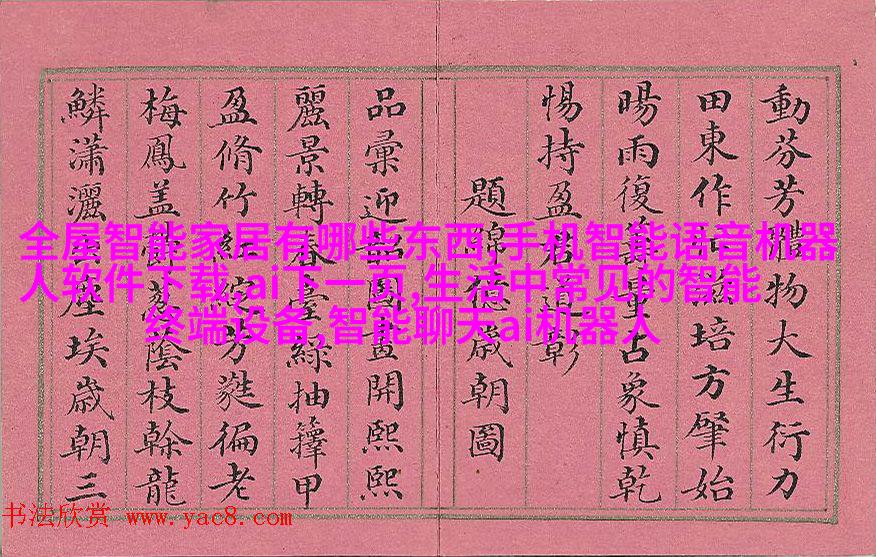 動芬芳體物大生衍力
田東作滋培方肇始
暘雨復量占象慎乾
惕持盈君道彰
題德歲朝圖
品彙迎韶圖畫開熙熙
麗景轉春臺緑抽籜甲
盈脩竹紅綻芳蕤徧老
梅鳳蓋蔭枝榦龍
鱗瀟灑塵埃歲朝三
全屋智能家居有哪些东西,手机智能语音机器
人软件下载,ai下一页,生活中常见的智能
终端设备,智能聊天ai机器人
书法欣赏 www.yac8.com